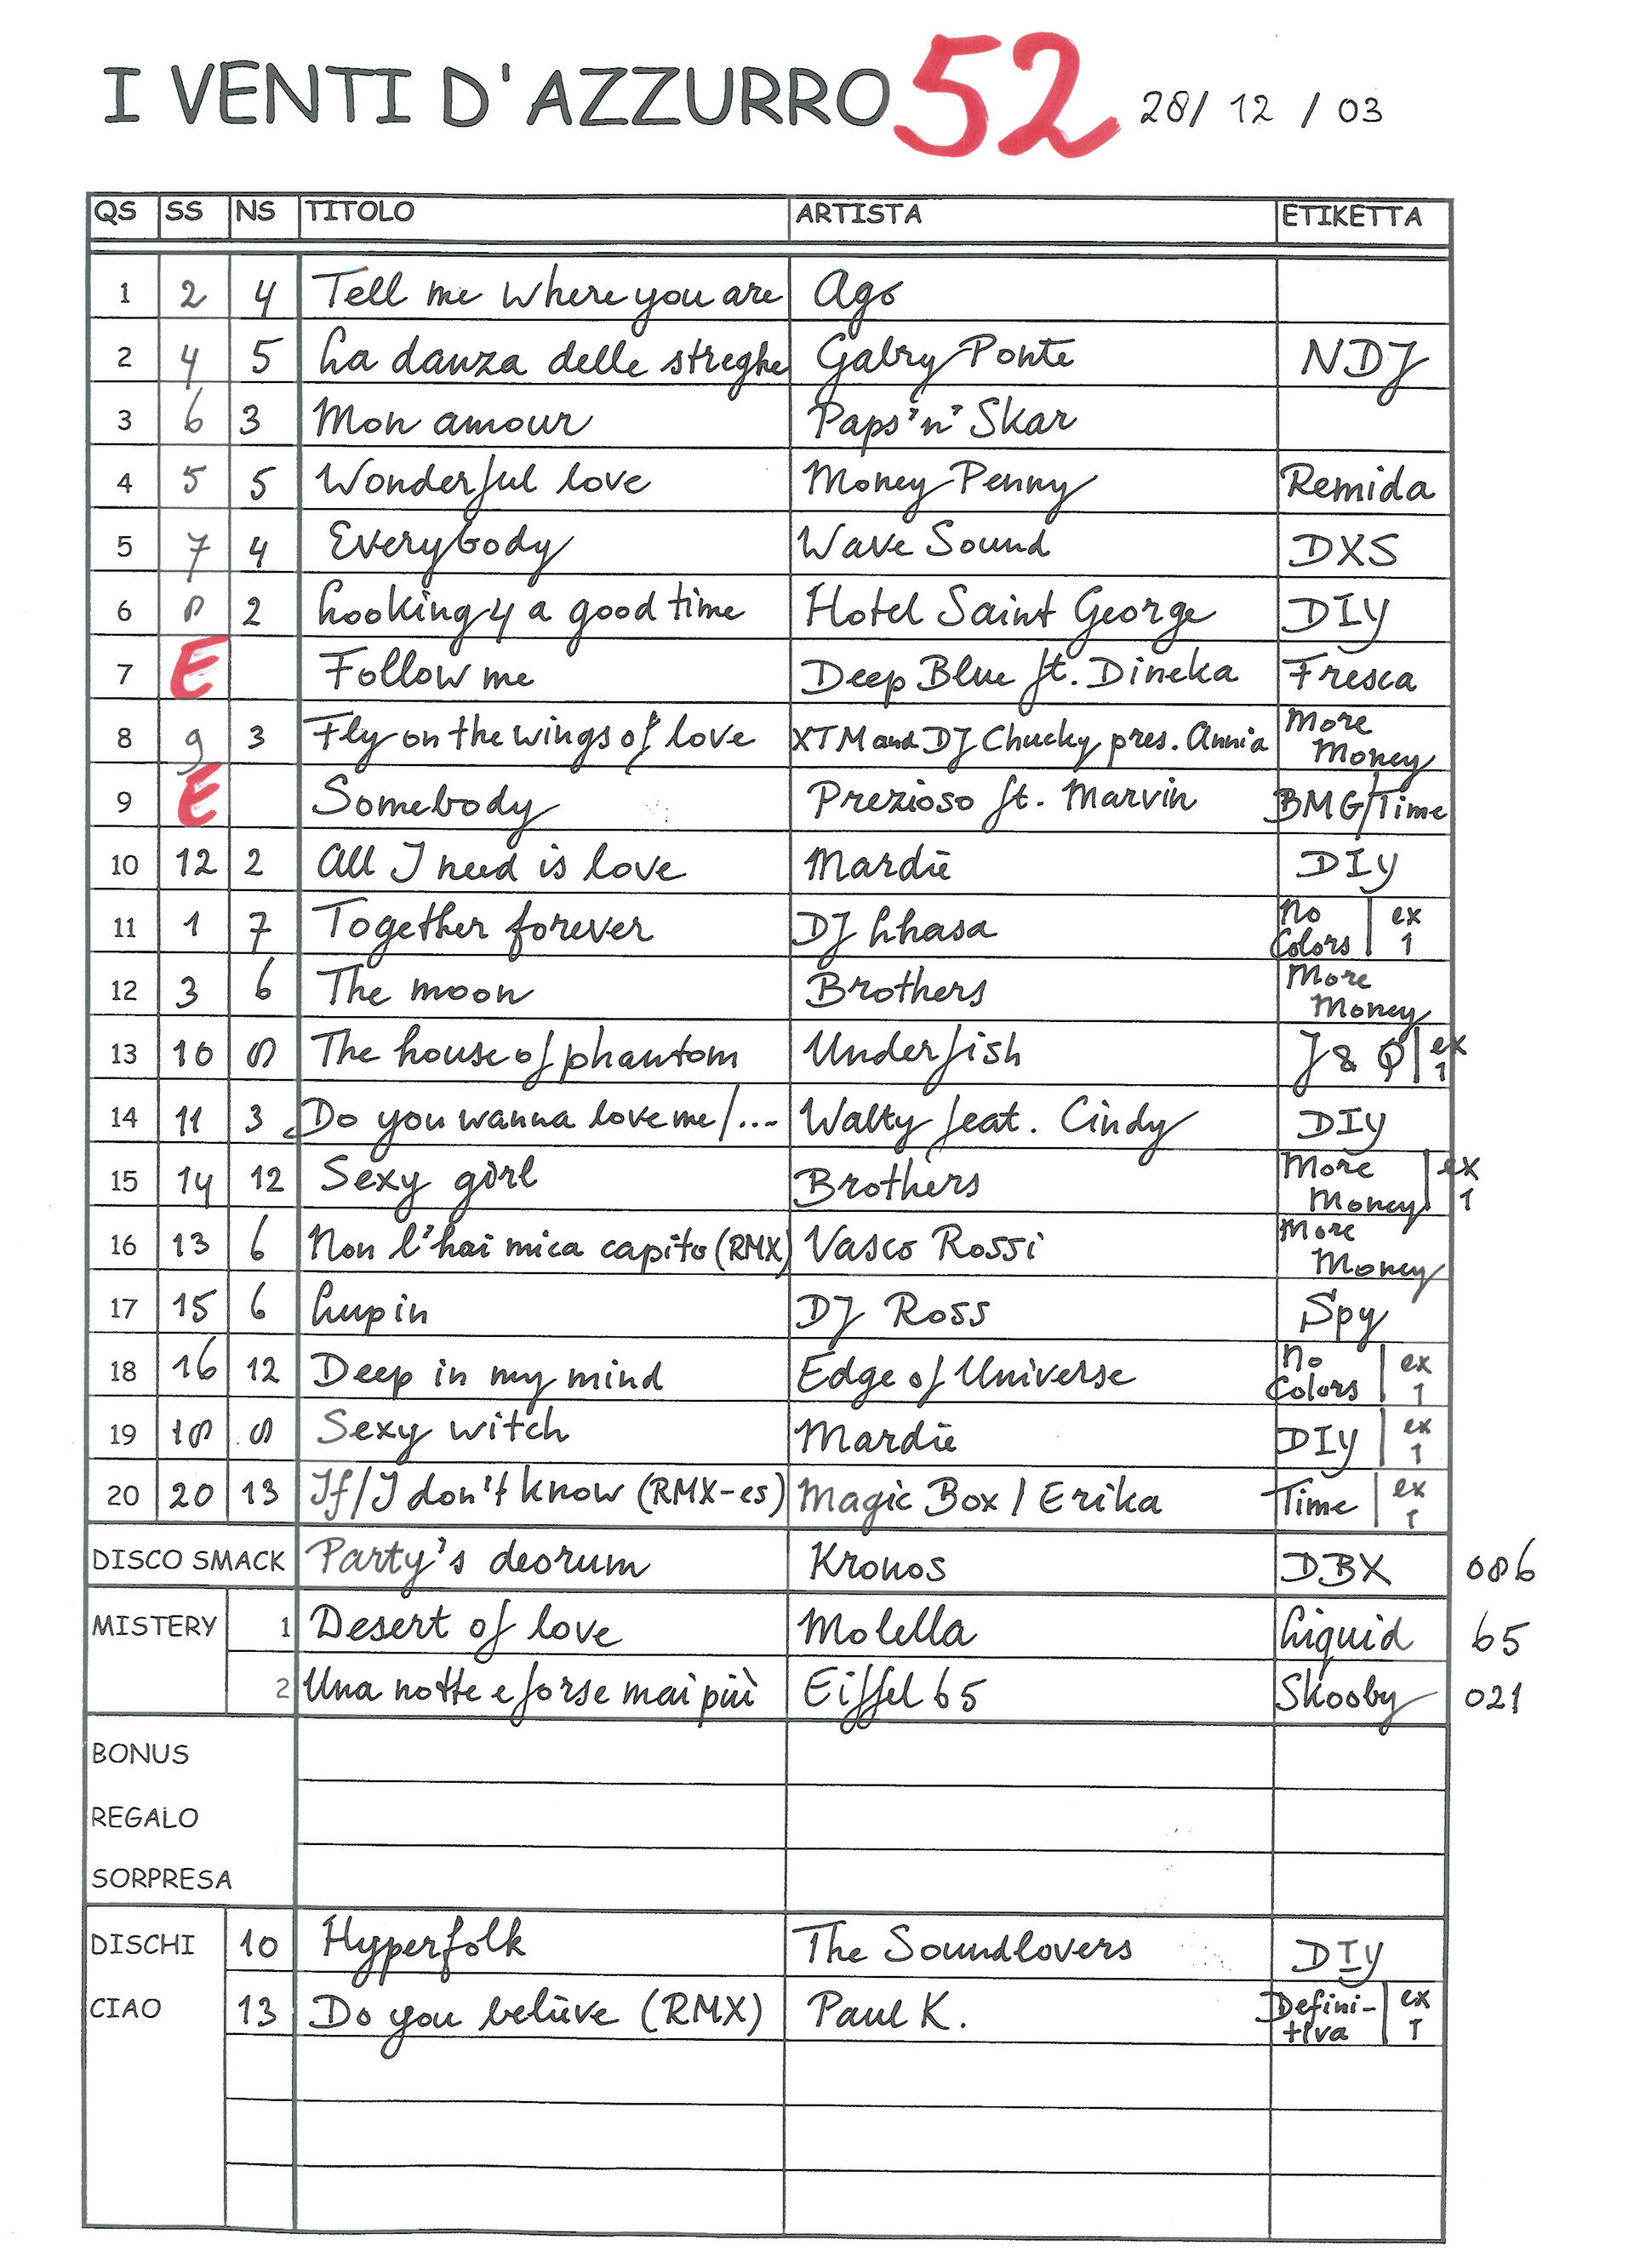 I VENTI D'AZZURRO 52 28/12/03
QS SS NS TITOLO ARTISTA ETIKETTA
1 2 4 Tell me where you are Ago
2 4 5 La danza delle streghe Gabry Ponte NDJ
3 6 3 Mon amour Paps'n'Skar
4 5 5 Wonderful love Money Penny Remida
5 7 4 Everybody Wave Sound DXS
6 8 2 Looking 4 a good time Hotel Saint George DIY
7 E Follow me Deep Blue ft. Dineka Fresca
8 9 3 Fly on the wings of love XTM and DJ Chucky pres. Annia More Money
9 E Somebody Prezioso ft. Marvin BMG/Time
10 12 2 All I need is love Mardie DIY
11 1 7 Together forever DJ Lhasa No Colors | ex 1
12 3 6 The moon Brothers More Money
13 10 8 The house of phantom Underfish J & Q | ex 1
14 11 3 Do you wanna love me/... Walty feat. Cindy DIY
15 14 12 Sexy girl Brothers More Money | ex 1
16 13 6 Non l'hai mica capito (RMX) Vasco Rossi More Money
17 15 6 Lupin DJ Ross Spy
18 16 12 Deep in my mind Edge of Universe No Colors | ex 1
19 18 8 Sexy witch Mardie DIY | ex 1
20 20 13 If/I don't know (RMX-es) Magic Box / Erika Time | ex 1
DISCO SMACK Party's deorum Kronos DBX 086
MISTERY 1 Desert of love Molella Liquid 65
2 Una notte e forse mai più Eiffel 65 Skooby 021
BONUS
REGALO
SORPRESA
DISCHI 10 Hyperfolk The Soundlovers DIY
CIAO 13 Do you believe (RMX) Paul K. Defini-tiva | ex 1